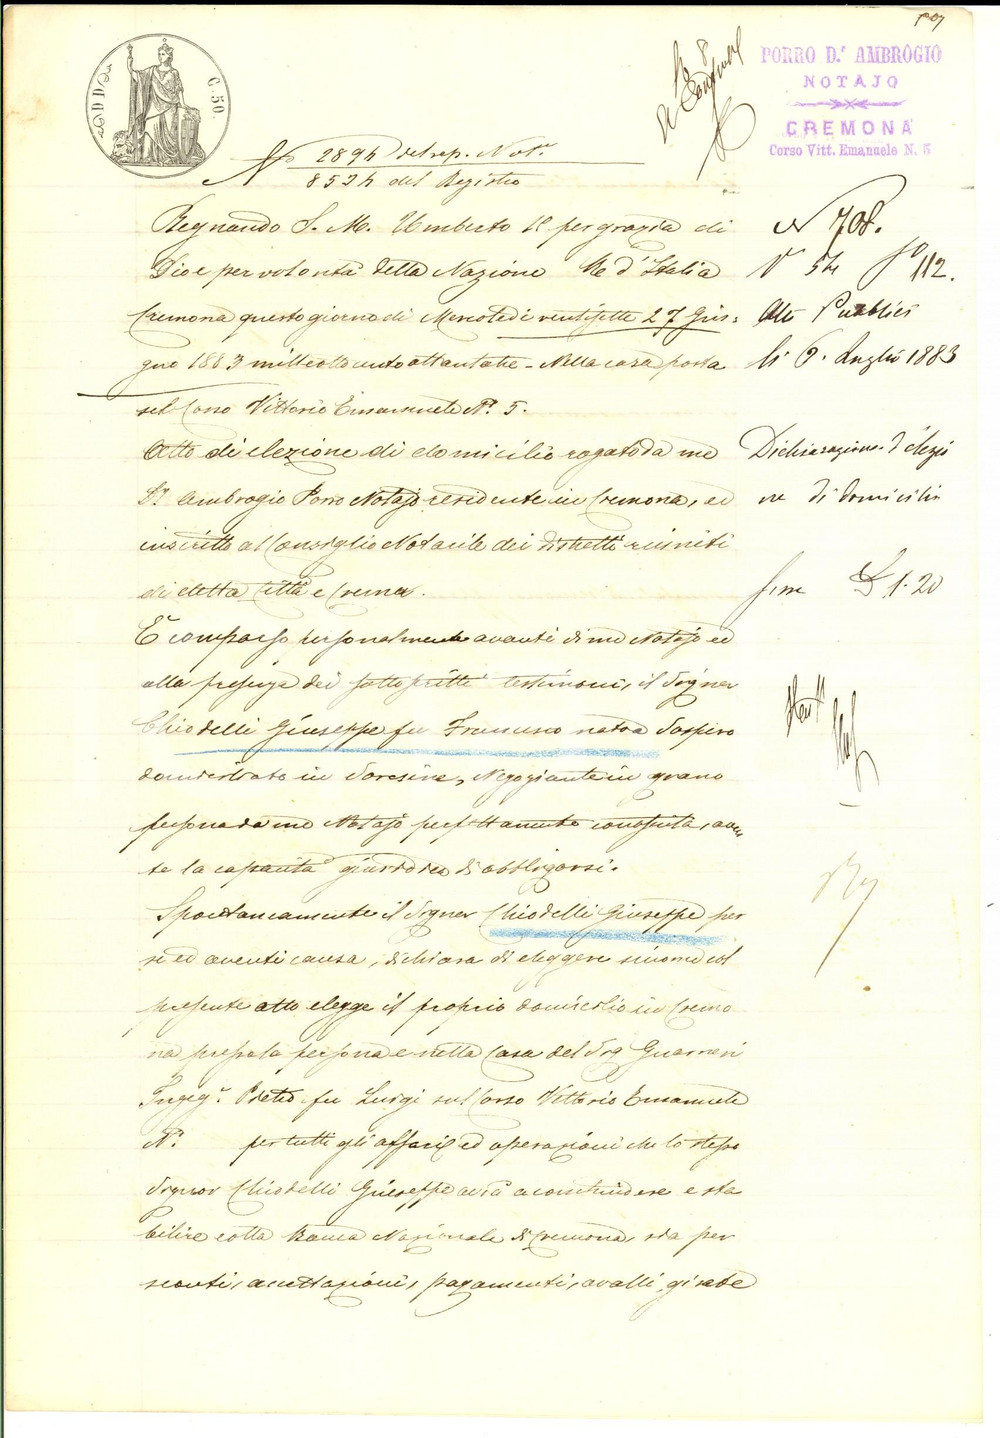 C. 50.
PORRO D.r AMBROGIO
NOTAJO
CREMONA
Corso Vitt. Emanuele N. 5
No 2894 del rep. Not.e
8534 del Registro
Regnando S. M. Umberto Io per grazia di
Dio e per volontà della Nazione Re d'Italia
Cremona questo giorno di Mercoledi ventisette 27 Giu=
gno 1883 mille ottocento ottantatre - Nella casa posta
sul Corso Vittorio Emanuele N.o 5.
Atto di elezione di domicilio rogato da me
Dr. Ambrogio Porro Notajo residente in Cremona, ed
inscritto al Consiglio Notarile dei distretti riuniti
di detta Città e Crema.
È comparso personalmente avanti di me Notajo ed
alla presenza dei sottoscritti testimoni, il Signor
Chiodelli Giuseppe fu Francesco nato a
domiciliato in Soresina, Negoziante in grano
persona da me Notajo perfettamente conosciuta, aven
te la capacità giuridica di obbligarsi.
Spontaneamente il Signor Chiodelli Giuseppe per
se ed aventi causa, dichiara di eleggere siccome col
presente atto elegge il proprio domicilio in Cremo
na presso la persona e nella Casa del Sig Guarneri
Ingeg.r Pietro fu Luigi sul Corso Vittorio Emanuele
N.o per tutti gli affari ed operazioni che lo stesso
Signor Chiodelli Giuseppe avrà a conchiudere e sta
bilire colla Banca Nazionale di Cremona, sia per
sconti, accettazioni, pagamenti, avalli, girate
N 708.
N 54 fo 112.
Atti Pubblici
li 6. Luglio 1883
Dichiarazione d'elezio
ne di domicilio
£ 1.20